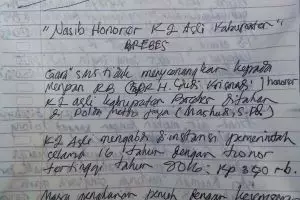 "Nasib Honorer K-2 Asli Kabupaten"
BREBES
Gara² sms tidak menyenangkan kepada
menpan RB (Bpk H. Yudi Krisnandi) honorer
K2 asli kabupaten Brebes ditahan
di Polda metro jaya (Mashudi S.Pd)
K2 Asli mengabdi di instansi pemerintah
selama 16 tahun dengan honor
tertinggi tahun 2016: Rp 350 rb.
Masa pengabdian penuh dengan